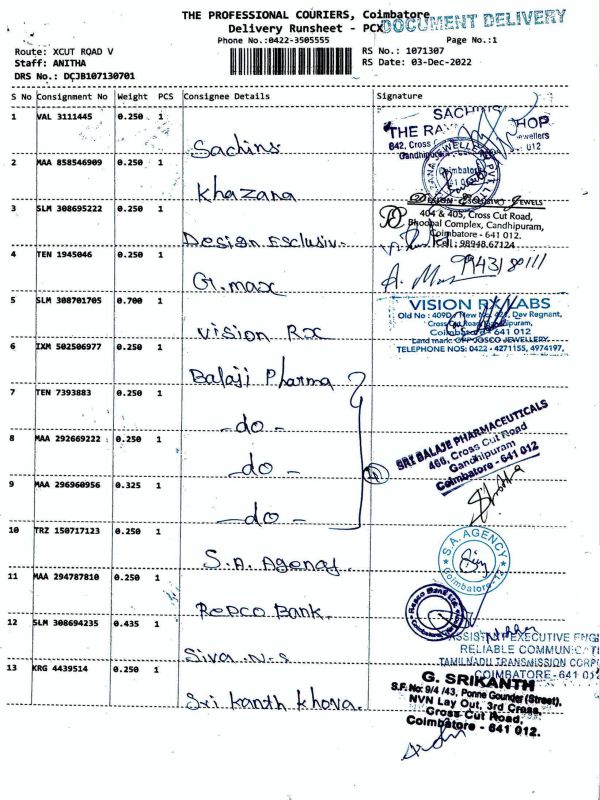 THE PROFESSIONAL COURIERS, Coimbatore
Delivery Runsheet - PCX
DOCUMENT DELIVERY
Phone No.:0422-3505555
Page No.:1
Route: XCUT ROAD V
RS No.: 1071307
Staff: ANITHA
RS Date: 03-Dec-2022
DRS No.: DCJB107130701
S No Consignment No Weight PCS Consignee Details Signature
1 VAL 3111445 0.250 1 Sachins
SACHINS
THE RAY HOP
642, Cross ewellers
Gandhipu 012
2 MAA 858546909 0.250 1 Khazana
Coimbatore
3 SLM 308695222 0.250 1 Design Esclusiv.
DESIGN EXCLUSIVE JEWELS
404 & 405, Cross Cut Road,
Bhoopal Complex, Gandhipuram,
Coimbatore - 641 012.
Cell : 98948.67124
4 TEN 1945046 0.250 1 G.max
5 SLM 308701705 0.700 1 Vision Rx
VISION RX LABS
Old No : 409D / New No. Dev Regnent,
Cross Cut Road, Gandhipuram,
Coimbatore 641 012
Land mark: OPP JOSCO JEWELLERY,
TELEPHONE NOS: 0422 - 4271155, 4974197,
6 IXM 502506977 0.250 1 Balaji Pharma
7 TEN 7393883 0.250 1 - do -
8 MAA 292669222 0.250 1 - do -
9 MAA 296960956 0.325 1 - do -
SRI BALAJE PHARMACEUTICALS
466, Cross Cut Road
Gandhipuram
Coimbatore - 641 012
10 TRZ 150717123 0.250 1 S.A. Agenaj.
S.A. AGENCY
Coimbatore-12
11 MAA 294787810 0.250 1 Repco Bank.
Repco Bank Ltd
12 SLM 308694235 0.435 1 Siva.N.S
ASSISTANT EXECUTIVE ENG
RELIABLE COMMUNICATI
TAMILNADU TRANSMISSION CORP
COIMBATORE-641 012
13 KRG 4439514 0.250 1 Sri Kanth Khova.
G. SRIKANTH
S.F. No: 9/4 /43, Ponne Gounder (Street),
NVN Lay Out, 3rd Cross,
Cross Cut Road,
Coimbatore - 641 012.